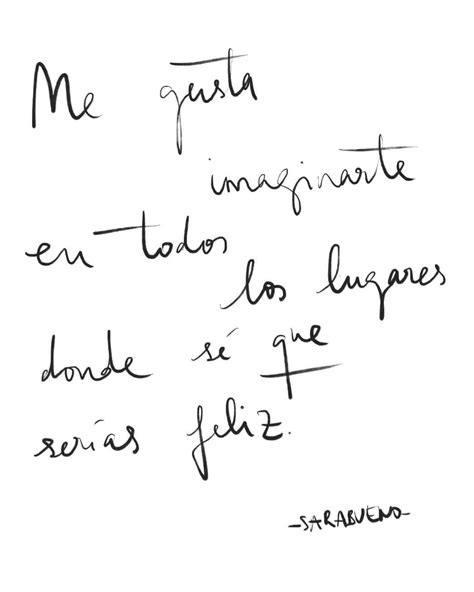 Me gusta
imaginarte
en todos
los lugares
donde sé que
serías feliz.
-SARABUENO-